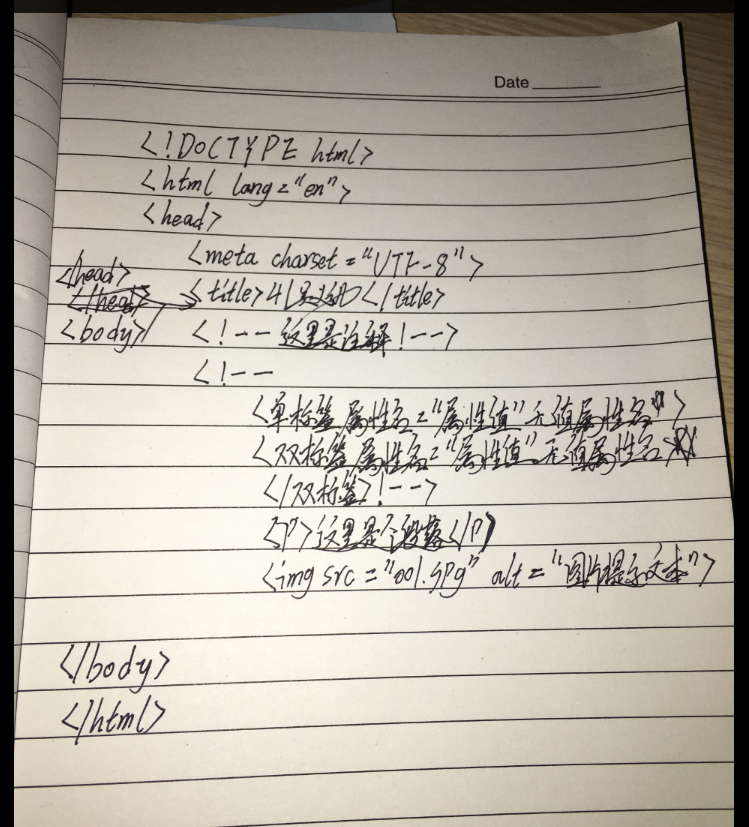 Date
<!DOCTYPE html>
<html lang="en">
<head>
<meta charset="UTF-8">
<title></title>
</head>
<body>
<!--这里是注解!-->
<!--
<单标签 属性名="属性值" 无值属性名>
<双标签 属性名="属性值" 无值属性名
</双标签>!-->
<P>这里是个段落</P>
<img src="001.jpg" alt="图片提示文本">
</body>
</html>